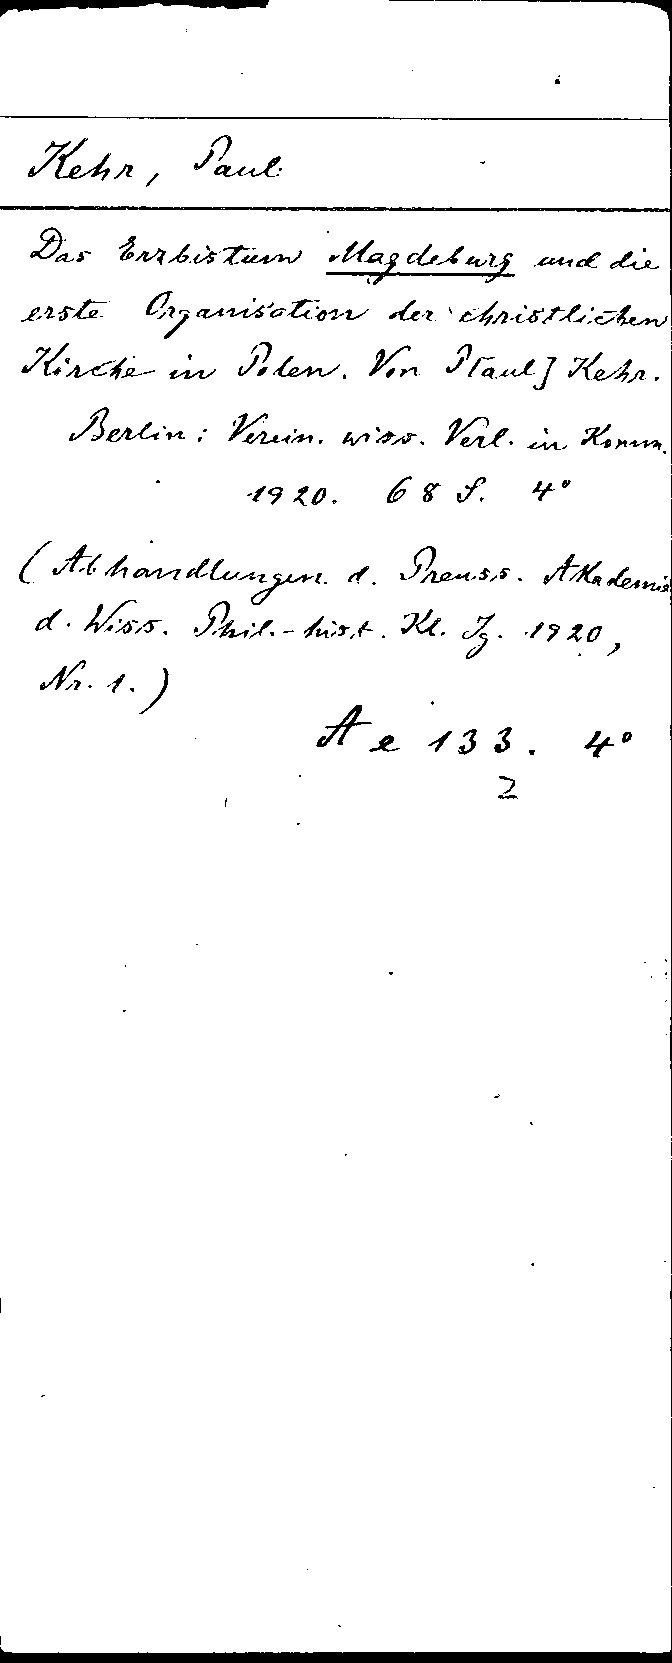 Kehr, Paul
Das Erzbistum Magdeburg und die
erste Organisation der christlichen
Kirche in Polen. Von P[aul] Kehr.
Berlin: Verein. wiss. Verl. in Komm.
1920. 68 S. 4°
(Abhandlungen. d. Preuss. Akademie
d. Wiss. Phil.-hist. Kl. Jg. 1920,
Nr. 1.)
Ae 133. 4°
2